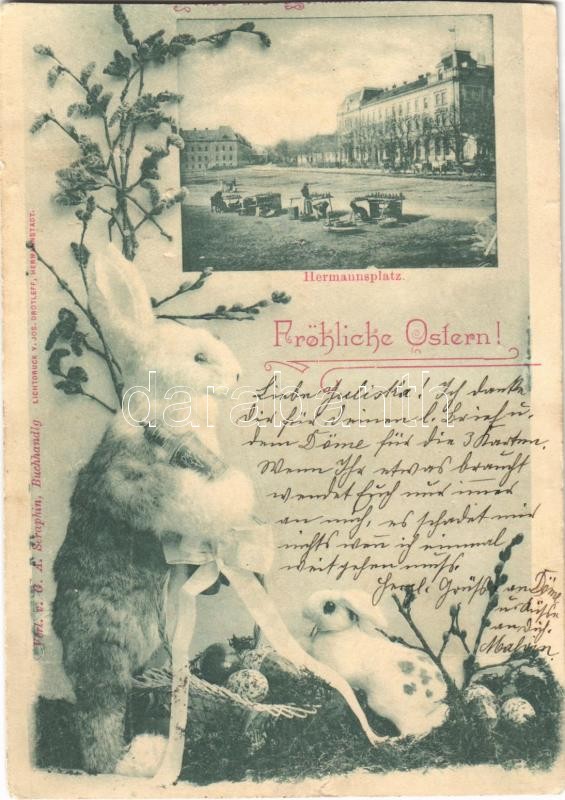 Hermannsplatz.
Fröhliche Ostern!
Liebe Juliska! Ich danke
Dir für deinen l. Brief u.
dem Döme für die 3 Karten.
Wenn Ihr etwas braucht
wendet Euch nur immer
an mich, es schadet mir
nichts wenn ich einmal
weit gehen muss.
Herzl. Grüsse an Döme
u. Küsse
an Dich.
Malvin.
Verl. v. G. A. Seraphin, Buchhandlg
LICHTDRUCK V. JOS. DROTLEFF, HERMANNSTADT.
darabanth